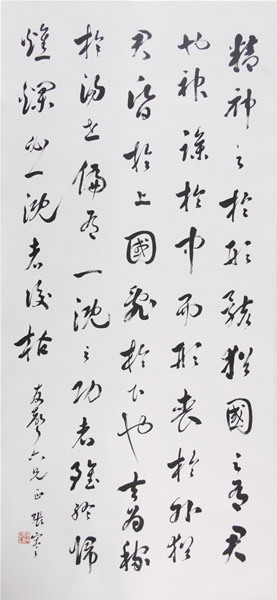 精神之於形骸猶國之有君
也神躁於中而形喪於外猶
君昏於上國亂於下也夫為稼
於湯世偏有一溉之功者雖終歸
燋爛必一溉者後枯
友聲六兄正 張